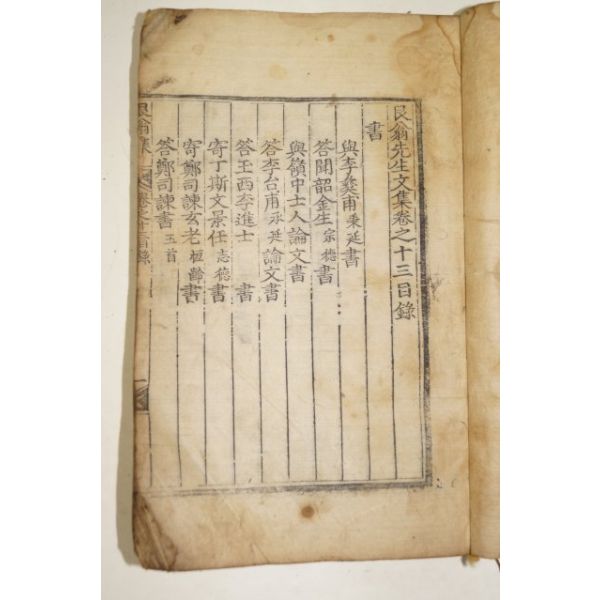 艮翁先生文集卷之十三目錄
書
與李彜甫秉延書
答聞韶金生宗德書
與嶺中士人論文書
答李台甫永延論文書
答王西李進士書
寄丁斯文景任志德書
寄鄭司諫玄老恒齡書
答鄭司諫書五首
艮翁集 卷之十三目錄 一